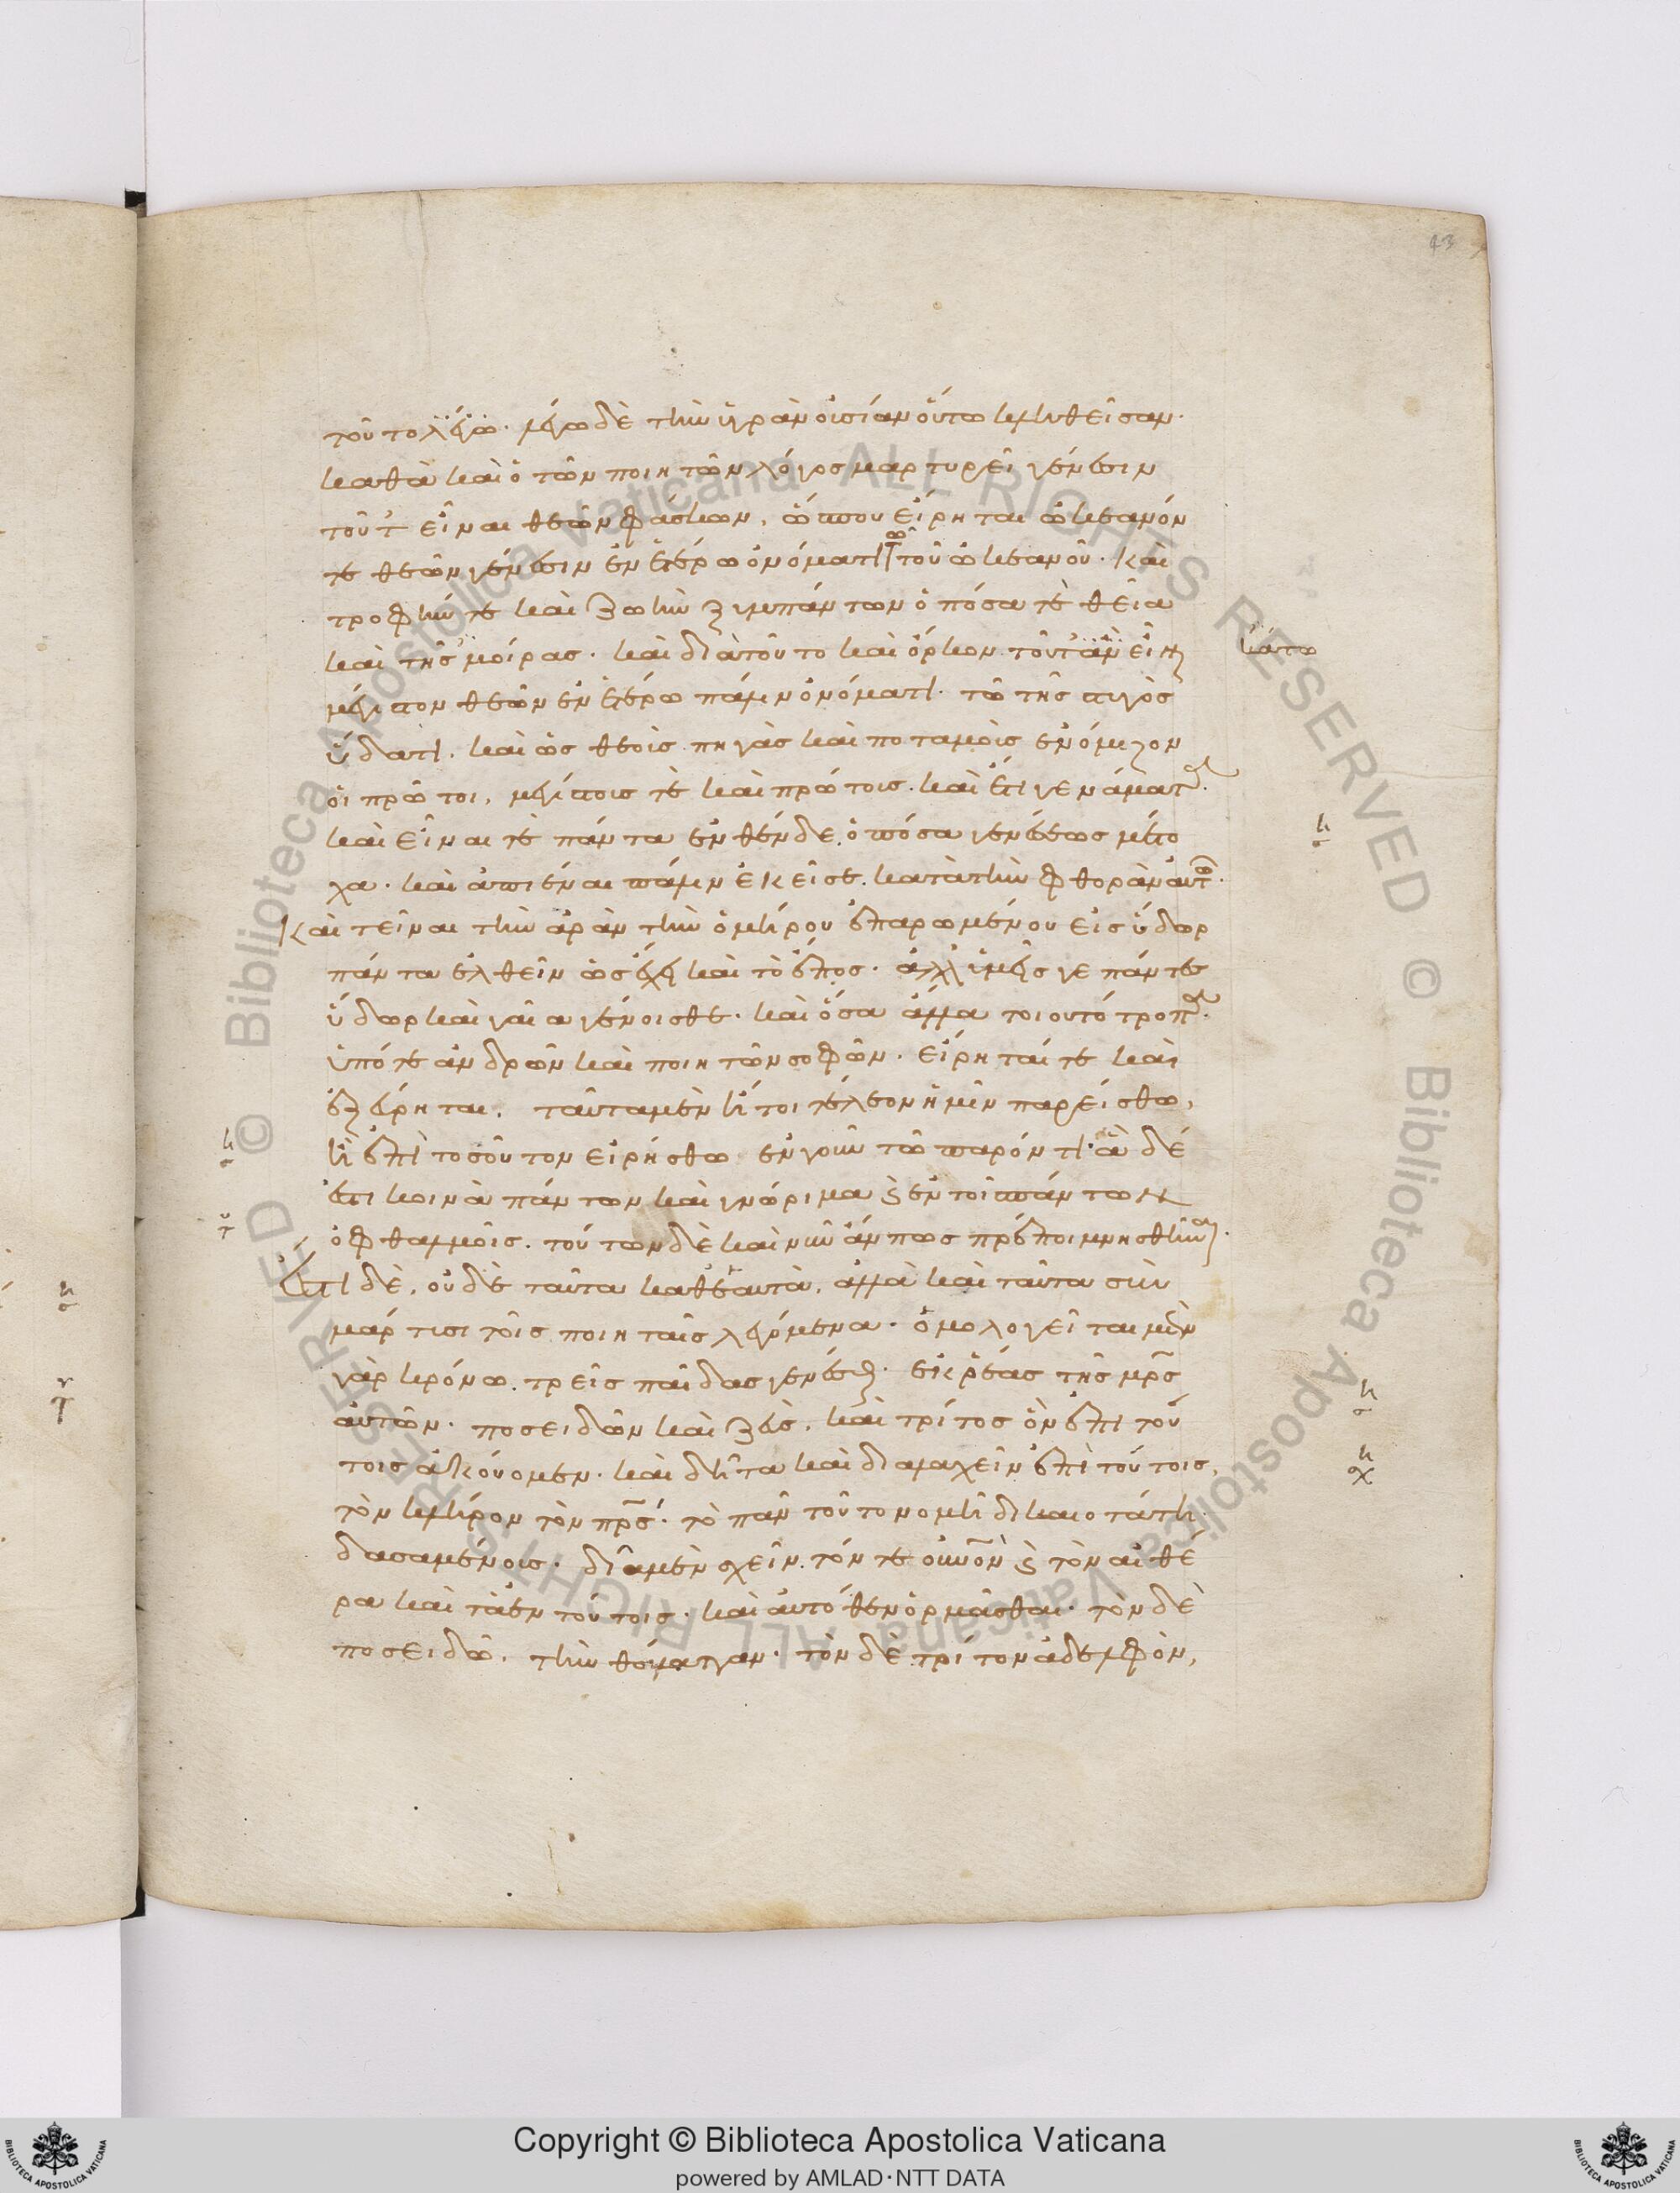 43
τοῦτο λέγω. λέγω δὲ τὴν ὑγρὰν οὐσίαν οὕτω κληθεῖσαν.
καθὰ καὶ ὁ τῶν ποιητῶν λόγος μαρτυρεῖ γένεσιν
εἶναι θεῶν φάσκων, ὥσπου εἴρηται ὠκεανόν
τε θεῶν γένεσιν ἐν ἑτέρω ὀνόματι τῶ τοῦ ὠκεανοῦ. καὶ
τροφήν τε καὶ ζωὴν ξυμπάντων ὁπόσα τε θεῖα
καὶ τῆσ μοίρασ. καὶ διὰ τοῦτο καὶ ὅρκον τοῦτ ἂν εἴη
κάτω
μέγιστον θεῶν ἐν ἑτέρω πάλιν ὀνόματι. τῶ τῆσ στυγὸσ
ὕδατι. καὶ ὡσ θεοὶσ πηγὰσ καὶ ποταμοῖσ ἐνόμιζον
οἱ πρῶτοι, μεγίστοισ τε καὶ πρώτοισ. καὶ ἔτι γε νάματ
καὶ εἶναι τὲ πάντα ἐνθένδε ὁπόσα γενέσεωσ μέτο
χα. καὶ ἀπιέναι πάλιν ἐκεῖσε. κατὰ τὴν φθορὰν αὐτῶν.
Καὶ τείναι τὴν ἀρὰν τὴν ὁμήρου ἐπαρωμένου εἰσ ὕδωρ
πάντα ἐλθεῖν ὡσ ἔχει καὶ τὸ ἔποσ. ἀλλ ὑμεῖσ γε πάντεσ
ὕδωρ καὶ γαῖα γένοισθε. καὶ ὅσα ἄλλα τοιουτότροπα.
ὑπό τε ἀνδρῶν καὶ ποιητῶν σοφῶν. εἴρηταί τε καὶ
ἐξεύρηται. ταῦτα μὲν ἤτοι τέλεον ἡμῖν παρείσθω,
ἢ ἐπὶ τοσοῦτον εἰρήσθω ἐν γοῦν τῶ παρόντι. ἃ δέ
ἐστι κοινὰ πάντων καὶ γνώριμα ἐν τοῖ πάντων
ὀφθαλμοῖσ. τούτων δὲ καὶ νῦν ἄν πωσ
Ἔτι δὲ, οὐδὲ ταῦτα καθ ἑαυτὰ, ἀλλὰ καὶ ταῦτα σὺν
μάρτυσι τοῖσ ποιηταῖσ λεγόμενα. ὁμολογεῖται μὲν
γὰρ κρόνω. τρεῖσ παῖδασ γενέσθαι. ἐκ ῥέασ τῆσ μρσ
αὐτῶν. ποσειδῶν καὶ ζεὺσ, καὶ τρίτοσ ὃν ἐπὶ τού
τοισ ἀκούομεν. καὶ δῆτα καὶ διαλαχεῖν ἐπὶ τούτοισ,
τὸν κλῆρον τὸν πρσ. τὸ πᾶν τοῦτο νομῆ δικαιοτάτη
δασαμένοισ. δία μὲν σχεῖν. τόν τε οὐνὸν τὸν αἰθέ
ρα καὶ τὰ ἐν τούτοισ. καὶ αὐτόθεν ὁρμᾶσθαι. τὸν δὲ
ποσειδῶ, τὴν θάλατταν. τὸν δὲ τρίτον ἀδελφὸν,
Copyright © Biblioteca Apostolica Vaticana
powered by AMLAD·NTT DATA